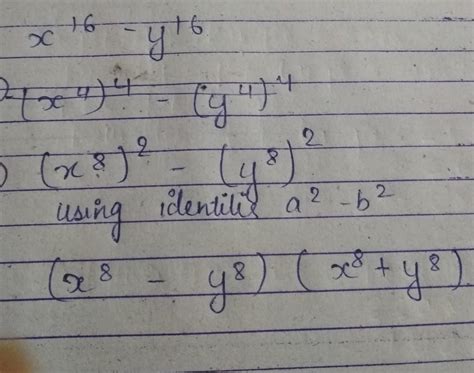 x¹⁶ - y¹⁶
) (x⁴)⁴ - (y⁴)⁴
) (x⁸)² - (y⁸)²
using identitis a² - b²
(x⁸ - y⁸) (x⁸ + y⁸)